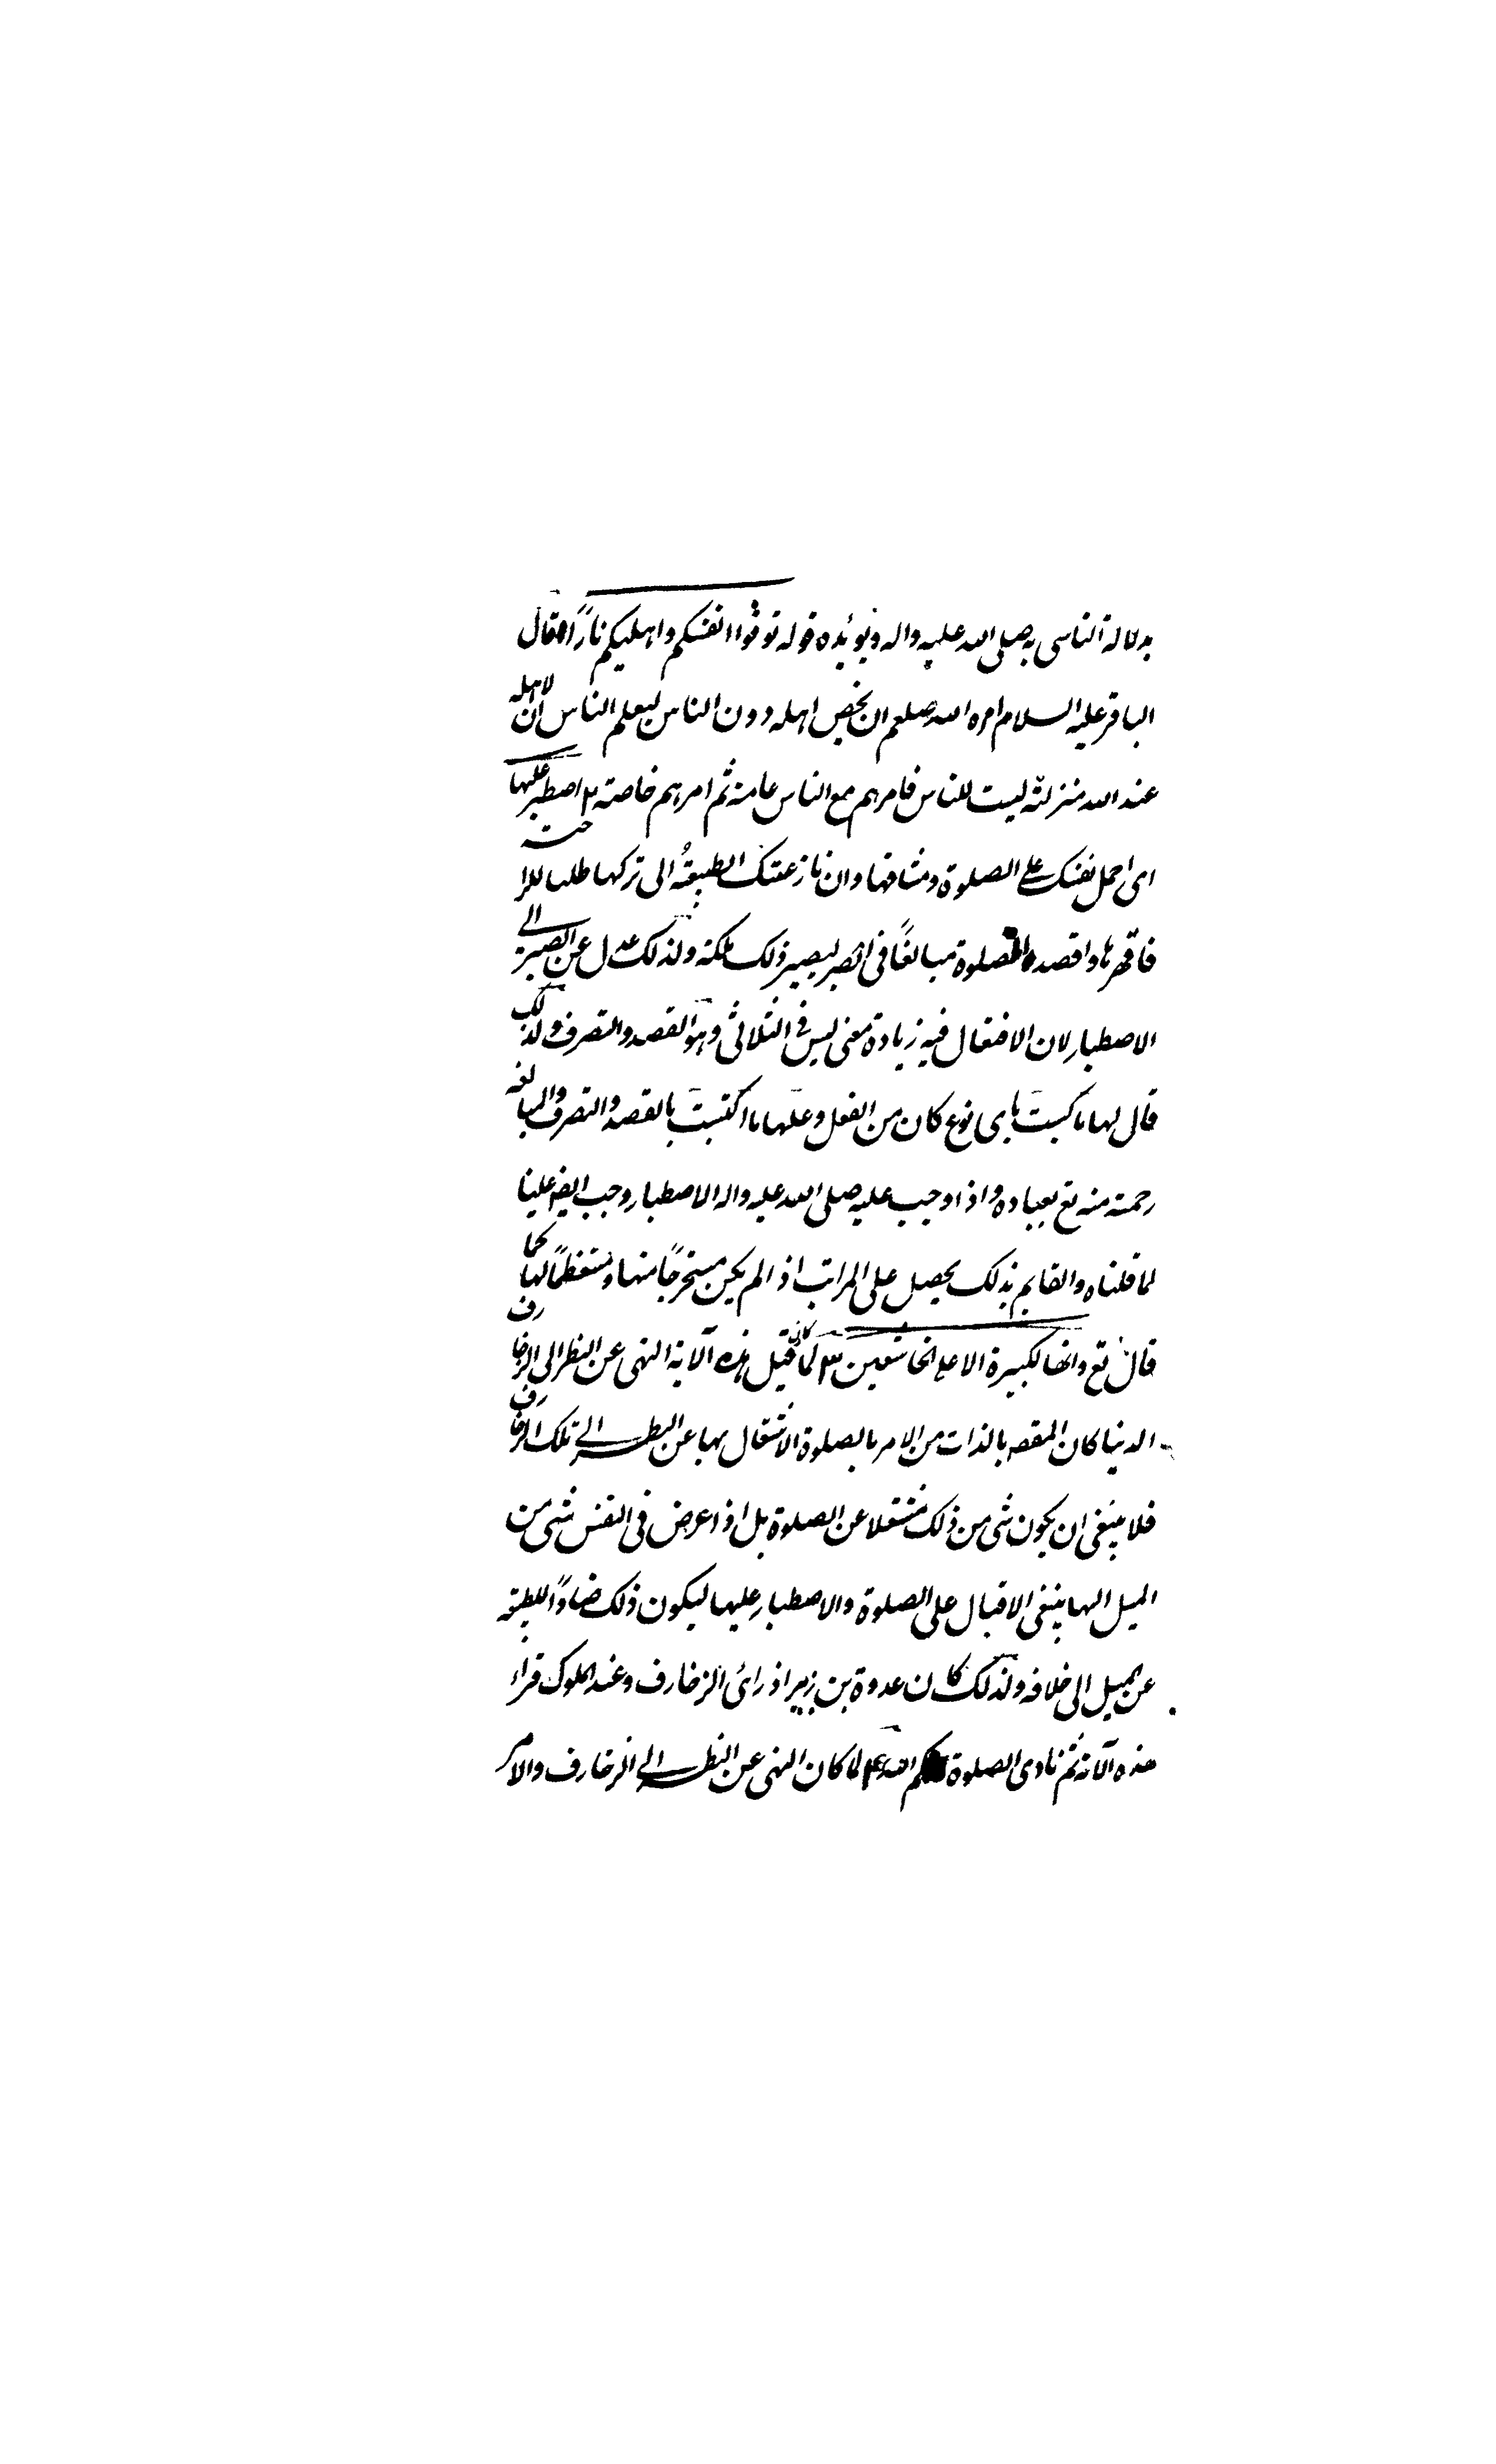 بدلالة التاسى به صلى الله عليه واله ويؤيده قوله تع قوا انفسكم واهليكم نارًا قال
الباقر عليه السلام امره الله صلعم ان يخص اهله دون الناس ليعلم الناس ان لاهله
عند الله منزلة ليست للناس فامرهم مع الناس عامة ثم امرهم خاصته ٢ اصطبر عليها
اى احمل نفسك على الصلوة ومشاقها وان نازعتك الطبيعة الى تركها طلبا للراحة
فاقهرها واقصد الصلوة مبالغًا فى الصبر ليصير ذلك ملكة ولذلك عدل عن الصبر الى
الاصطبار لان الافتعال فيه زيادة معنى ليس فى الثلاثى وهو القصد والتصرف ولذلك
قال لها ما كسبت باى نوع كان من الفعل وعليها ما اكتسبت بالقصد والتصرف والمبالغة
رحمة منه تع بعباده واذا وجب عليه صلى الله عليه واله الاصطبار وجب ايضا علينا
لما قلناه والقايم بذلك يحصل على المراتب اذ الم يكن مستخرجًا منها ومستعظمًا لها كما
قال تع وانها لكبيرة الا على الخاشعين ٣ لما كان قبيل هذه الآية النهى عن النظر الى الزخارف
الدنيا كان المقصد بالذات من الامر بالصلوة الاشتغال بها عن النظر الى تلك الزخارف
فلا ينبغى ان يكون شى من ذلك مشتغلا عن الصلوة بل اذا عرض فى النفس شى من
الميل اليها ينبغى الاقبال على الصلوة والاصطبار عليها ليكون ذلك صادًّا للطبيعة
عن الميل الى خلافه ولذلك كان عروة بن زبير اذ رائ الزخارف وعند الملوك قراء
هذه الآية ثم نادى الصلوة يرحمكم الله ٤ لما كان النهى عن النظر الى الزخارف والامر